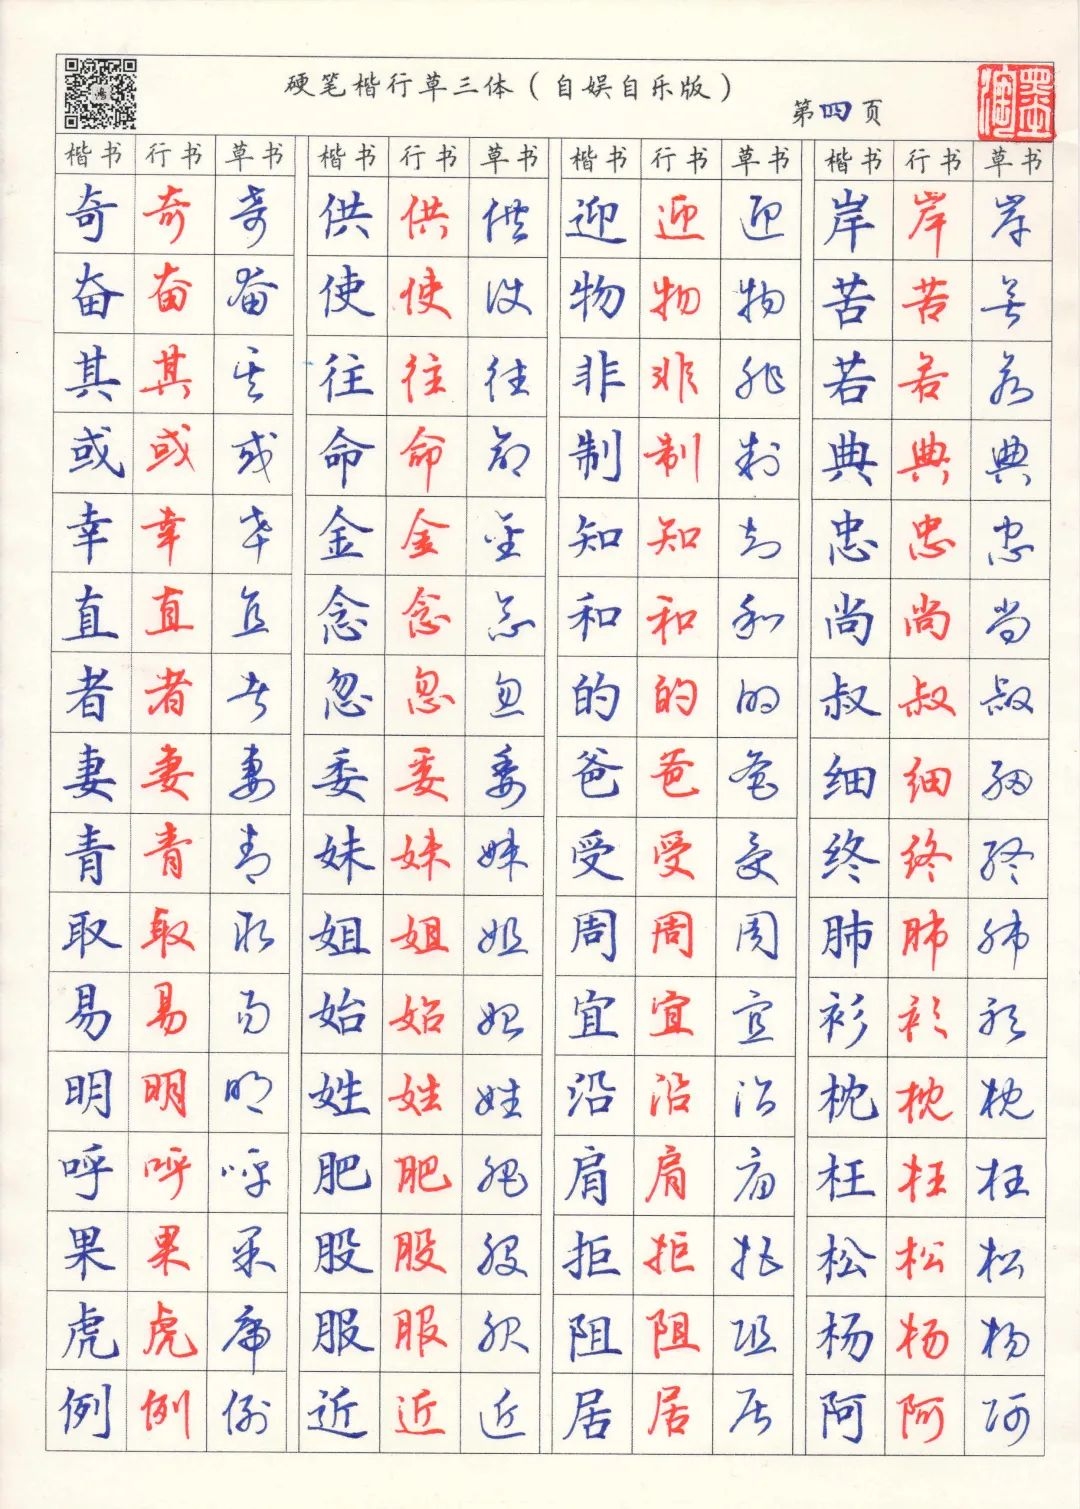 硬笔楷行草三体（自娱自乐版）
第四页
楷书 行书 草书 楷书 行书 草书 楷书 行书 草书 楷书 行书 草书
奇 奇 奇 供 供 供 迎 迎 迎 岸 岸 岸
奋 奋 奋 使 使 使 物 物 物 苦 苦 苦
其 其 其 往 往 往 非 非 非 若 若 若
或 或 或 命 命 命 制 制 制 典 典 典
幸 幸 幸 金 金 金 知 知 知 忠 忠 忠
直 直 直 念 念 念 和 和 和 尚 尚 尚
者 者 者 忽 忽 忽 的 的 的 叔 叔 叔
妻 妻 妻 委 委 委 爸 爸 爸 细 细 细
青 青 青 妹 妹 妹 受 受 受 终 终 终
取 取 取 姐 姐 姐 周 周 周 肺 肺 肺
易 易 易 始 始 始 宜 宜 宜 衫 衫 衫
明 明 明 姓 姓 姓 沿 沿 沿 枕 枕 枕
呼 呼 呼 肥 肥 肥 肩 肩 肩 枉 枉 枉
果 果 果 股 股 股 拒 拒 拒 松 松 松
虎 虎 虎 服 服 服 阻 阻 阻 杨 杨 杨
例 例 例 近 近 近 居 居 居 阿 阿 阿